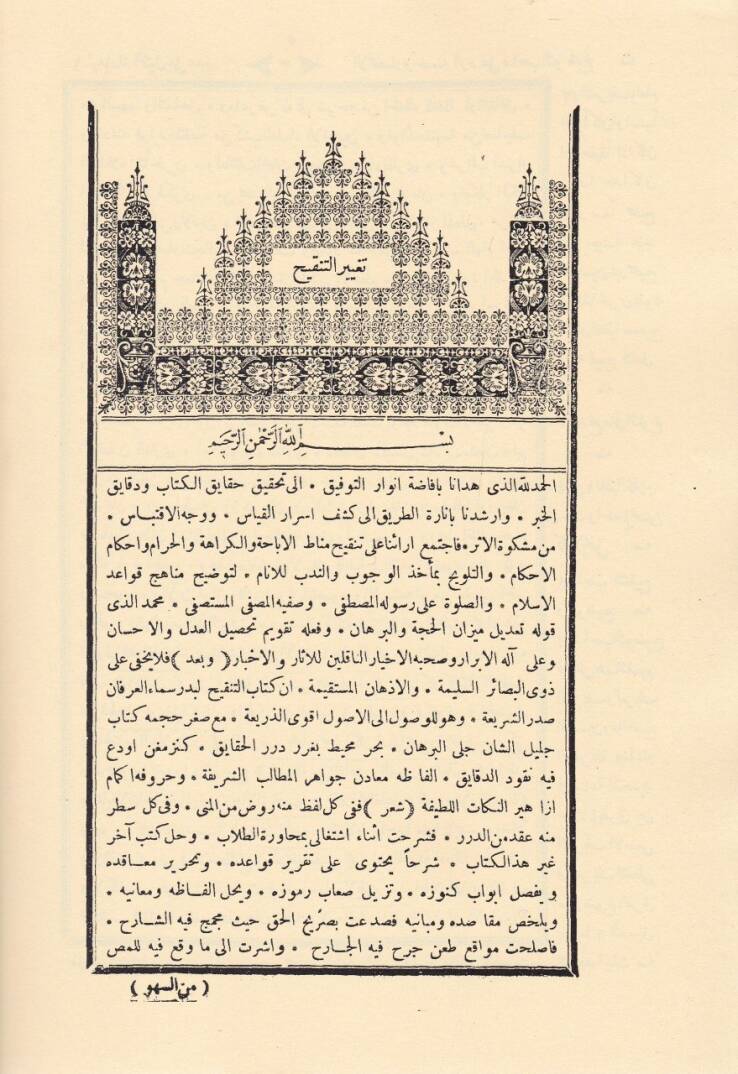 تغيير التنقيح
بسم الله الرحمن الرحيم
الحمد لله الذى هدانا بافاضة انوار التوفيق • الى تحقيق حقايق الكتاب ودقايق
الخبر • وارشدنا بإنارة الطريق الى كشف اسرار القياس • ووجه الاقتباس •
من مشكوة الاثر • فاجتمع ارائنا على تنقيح مناط الاباحة والكراهة والحرام واحكام
الاحكام • والتلويح بمأخذ الوجوب والندب للانام • لتوضيح مناهج قواعد
الاسلام • والصلوة على رسوله المصطفى • وصفيه المصفى المستصفى • محمد الذى
قوله تعديل ميزان الحجة والبرهان • وفعله تقويم تحصيل العدل والاحسان
وعلى آله الابرار وصحبه الاخيار الناقلين للاثار والاخبار ( وبعد ) فلا يخفى على
ذوى البصائر السليمة • والاذهان المستقيمة • ان كتاب التنقيح لبدر سماء العرفان
صدر الشريعة • وهو للوصول الى الاصول اقوى الذريعة • مع صغر حجمه كتاب
جليل الشان جلى البرهان • بحر محيط بغرر درر الحقايق • كنز مغن اودع
فيه نقود الدقايق • الفاظه معادن جواهر المطالب الشريفة • وحروفه اكمام
ازاهير النكات اللطيفة ( شعر ) ففى كل لفظ منه روض من المنى • وفى كل سطر
منه عقد من الدرر • فشرحت اثناء اشتغالى بمحاورة الطلاب • وحل كتب آخر
غير هذ الكتاب • شرحاً يحتوى على تقرير قواعده • وتحرير معاقده
ويفصل ابواب كنوزه • وتزيل صعاب رموزه • ويحل الفاظه ومعانيه •
ويلخص مقاصده ومبانيه فصدعت بصريح الحق حيث مجمج فيه الشارح •
فاصلحت مواقع طعن جرح فيه الجارح • واشرت الى ما وقع فيه للمص
( من السهو )